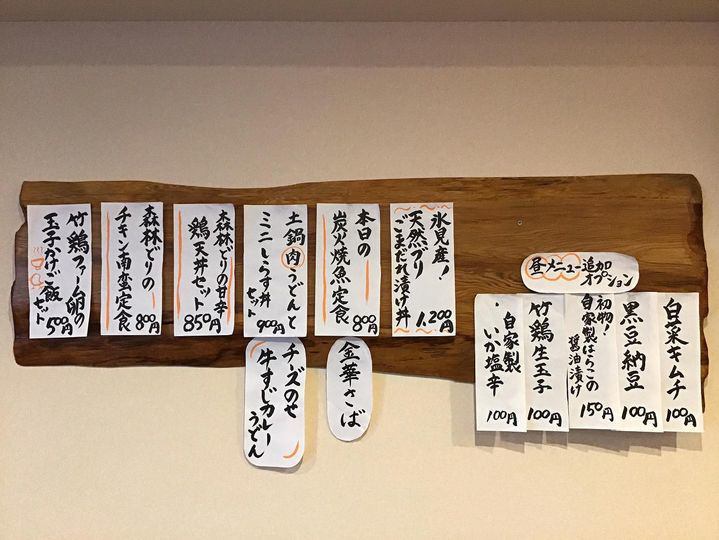 氷見産！
天然ぶり
ごまだれ漬け丼
1,200円
本日の
炭火焼魚定食
800円
金華さば
土鍋肉うどんと
ミニしらす丼
セット
900円
チーズのせ
牛すじカレー
うどん
森林どりの甘辛
鶏天丼セット
850円
森林どりの
チキン南蛮定食
800円
竹鶏ファーム卵の
玉子かけご飯
セット
500円
昼メニュー追加
オプション
白菜キムチ
100円
黒豆納豆
100円
初物！
自家製はらこの
醤油漬け
150円
竹鶏生玉子
100円
自家製
いか塩辛
100円